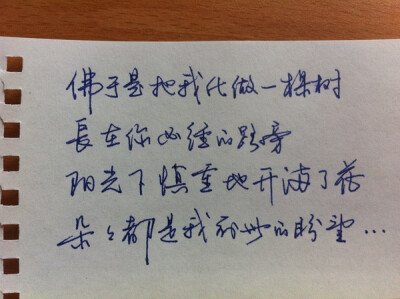 佛于是把我化做一棵树
長在你必經的路旁
阳光下慎重地开满了花
朵々都是我前世的盼望…